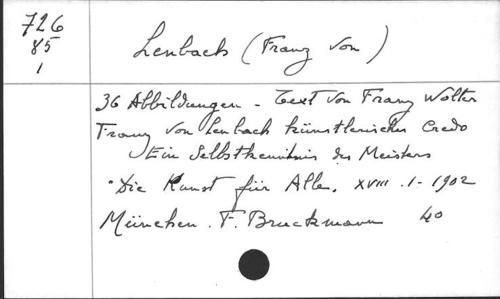 726
85
1
Lenbach (Franz von)
36 Abbildungen - Text von Franz Wolter
Franz von Lenbach künstlerisches Credo
Ein Selbstkenntnis des Meisters
"Die Kunst für Alle. XVIII. 1 - 1902
München. F. Bruckmann 40